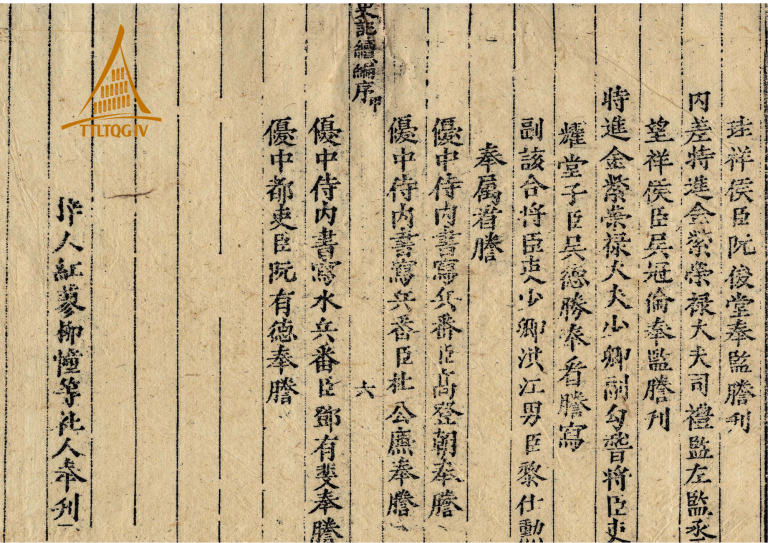 珪祥侯臣阮俊堂奉監謄刊
内差特進金紫榮禄大夫司禮監左監丞
望祥侯臣吴冠倫奉監謄刊
特進金紫榮禄大夫少卿副勾稽将臣吏
耀堂子臣吴德勝奉看謄寫
副該合将臣吏少卿洪江男臣黎仕勲
奉属着謄
優中侍内書寫兵番臣髙登朝奉謄
優中侍内書寫兵番臣杜公廉奉謄
史記續編序 甲
六
優中侍内書寫水兵番臣鄧有斐奉謄
優中都吏臣阮有德奉謄
梓人紅蓼柳幢等社人奉刊
TTLTQGIV